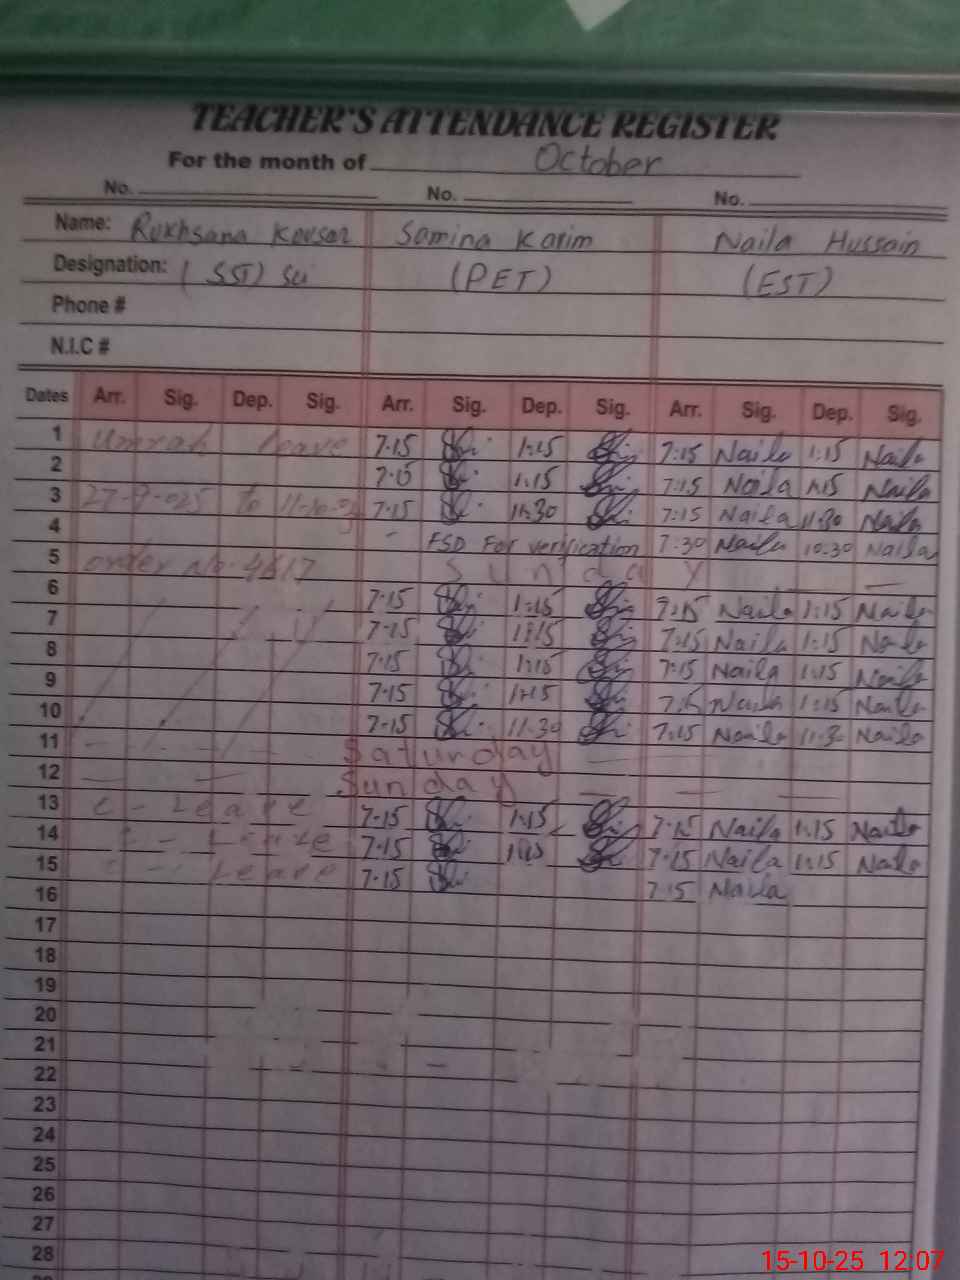 TEACHER'S ATTENDANCE REGISTER
For the month of October
No. No. No.
Name: Rukhsana Kousar Samina Karim Naila Hussain
Designation: (SST) Sci (PET) (EST)
Phone #
N.I.C #
Dates Arr. Sig. Dep. Sig. Arr. Sig. Dep. Sig. Arr. Sig. Dep. Sig.
1 Umrah leave 7:15 1:15 7:15 Naila 1:15 Naila
2 7:15 1:15 7:15 Naila 1:15 Naila
3 27-9-025 to 11-10-25 7:15 11:30 7:15 Naila 11:30 Naila
4 - FSD For verification 7:30 Naila 10:30 Naila
5 order no. 4617 Sunday
6 7:15 1:15 7:15 Naila 1:15 Naila
7 7:15 1:15 7:15 Naila 1:15 Naila
8 7:15 1:15 7:15 Naila 1:15 Naila
9 7:15 1:15 7:15 Naila 1:15 Naila
10 7:15 11:30 7:15 Naila 11:30 Naila
11 Saturday
12 Sunday
13 C - Leave 7:15 1:15 7:15 Naila 1:15 Naila
14 C - Leave 7:15 1:15 7:15 Naila 1:15 Naila
15 C - Leave 7:15 7:15 Naila
16
17
18
19
20
21
22
23
24
25
26
27
28
15-10-25 12:07